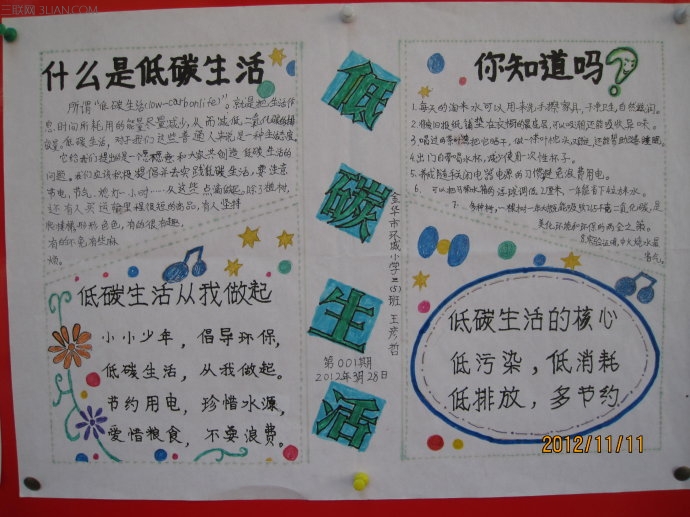 三联网 3LIAN.COM
什么是低碳生活
所谓"低碳生活(low-carbonlife)"。就是把生活作
息时间所耗用的能量尽量减少,从而减低二氧化碳的排
放量。低碳生活,对于我们这些普通人来说是一种生活态度。
它给我们提出的是一个愿和大家共创造低碳生活的
问题。我们应该积极提倡并去实践低碳生活,要注意
节电,节气,熄灯一小时……从这些点滴做起。除了植树,
还有人买运输里程很短的商品,有人坚持
爬楼梯形形色色,有的很有趣,
有的不免有些麻
烦。
低碳生活从我做起
小小少年,倡导环保,
低碳生活,从我做起。
节约用电,珍惜水源,
爱惜粮食,不要浪费。
低碳生活
金华市环城小学三(5)班 王彦哲
第001期
2012年3月28日
你知道吗?
1.每天的淘米水可以用来洗手擦家具,干净卫生,自然滋润。
2.将废旧报纸铺垫在衣橱的最底层,可以吸潮还能吸收异味。
3.喝过的茶叶渣把它晒干,做一个茶叶枕头,又舒适,还能帮助改善睡眠。
4.出门自带喝水杯,减少使用一次性杯子。
5.养成随手关闭电器电源的习惯避免浪费用电。
6.可以把马桶水箱的浮球调低2厘米,一年能省下4立方水。
7.多种树,一棵树一年大约能吸收十几千克二氧化碳,是
美化环境和环保的两全之策。
8.实验证明,中火烧水最
省气。
低碳生活的核心
低污染,低消耗
低排放,多节约
2012/11/11